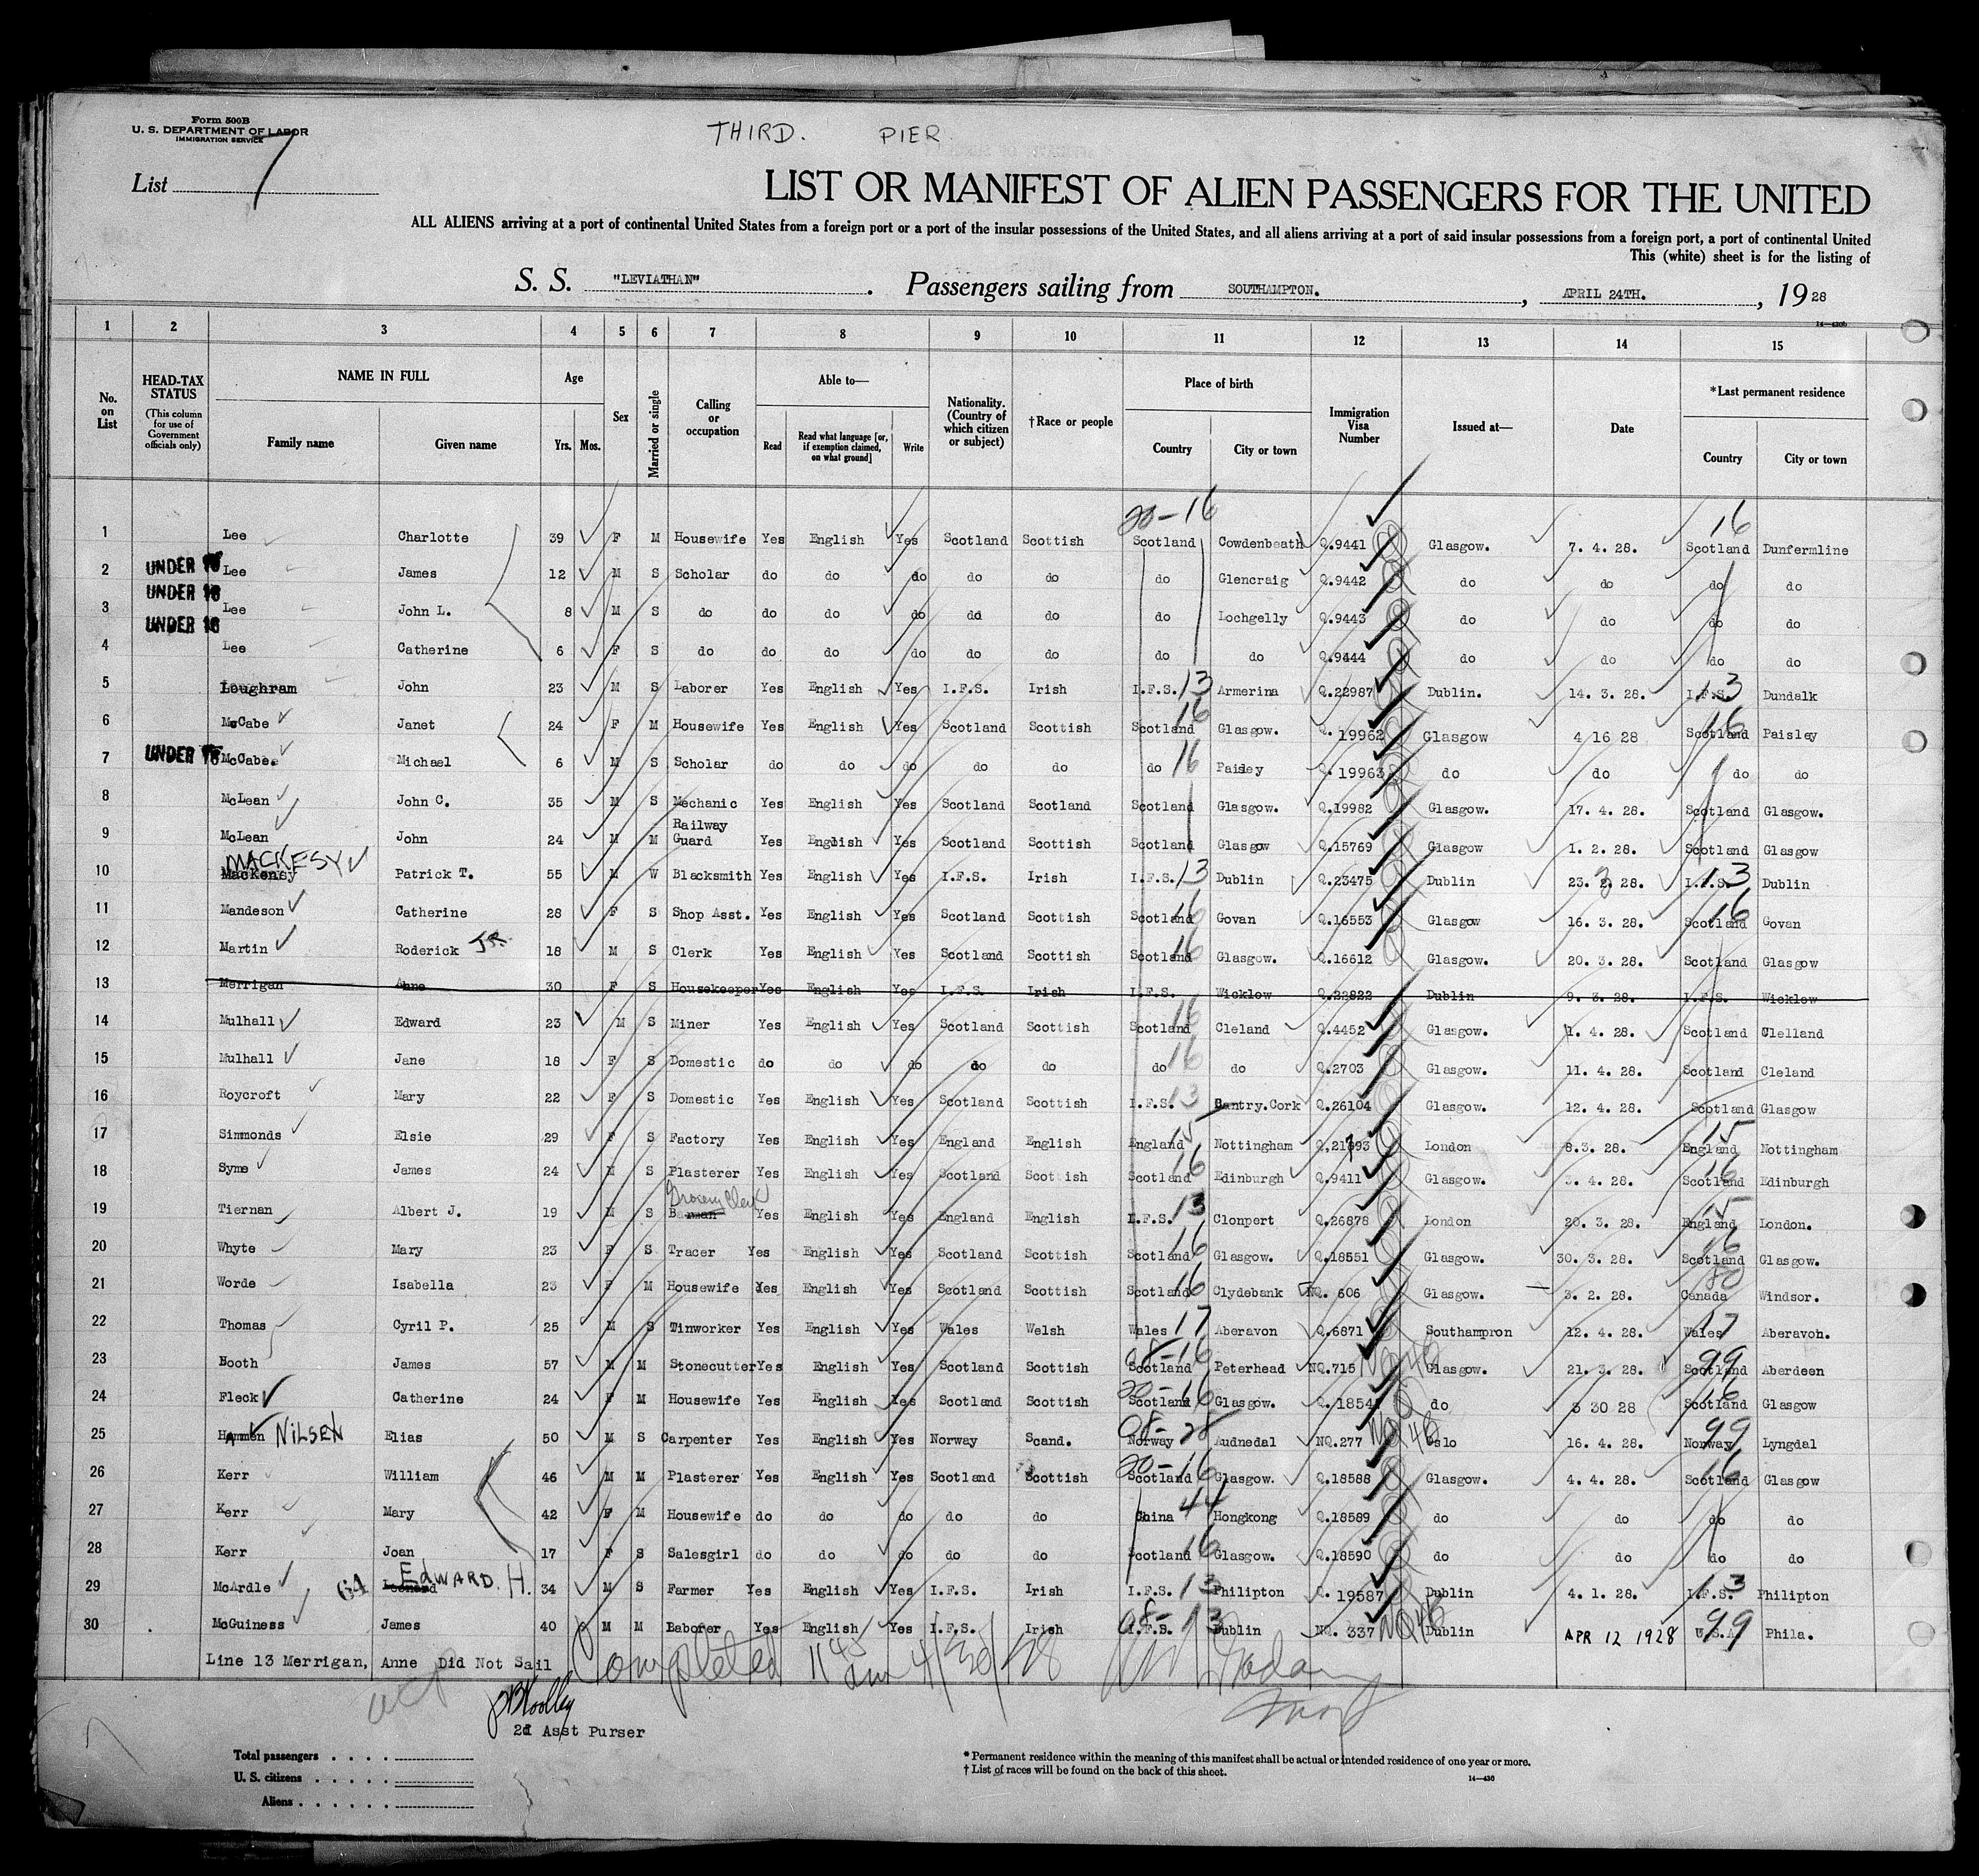 Form 500B
U. S. DEPARTMENT OF LABOR
IMMIGRATION SERVICE
THIRD. PIER
List 7
LIST OR MANIFEST OF ALIEN PASSENGERS FOR THE UNITED
ALL ALIENS arriving at a port of continental United States from a foreign port or a port of the insular possessions of the United States, and all aliens arriving at a port of said insular possessions from a foreign port, a port of continental United
This (white) sheet is for the listing of
S. S. "LEVIATHAN". Passengers sailing from SOUTHAMPTON. , APRIL 24TH. , 1928
14—430b
1 2 3 4 5 6 7 8 9 10 11 12 13 14 15
No. on List
HEAD-TAX STATUS (This column for use of Government officials only)
NAME IN FULL
Family name Given name
Age Yrs. Mos.
Sex
Married or single
Calling or occupation
Able to—
Read Read what language [or, if exemption claimed, on what ground] Write
Nationality. (Country of which citizen or subject)
†Race or people
Place of birth
Country City or town
Immigration Visa Number
Issued at—
Date
*Last permanent residence
Country City or town
20-16 16
1 Lee Charlotte 39 F M Housewife Yes English Yes Scotland Scottish Scotland Cowdenbeath Q.9441 Glasgow. 7. 4. 28. Scotland Dunfermline
2 UNDER 16 Lee James 12 M S Scholar do do do do do do Glencraig Q.9442 do do do do
3 UNDER 16 Lee John L. 8 M S do do do do do do do Lochgelly Q.9443 do do do do
4 UNDER 16 Lee Catherine 6 F S do do do do do do do do Q.9444 do do do do
5 Loughram John 23 M S Laborer Yes English Yes I.F.S. Irish I.F.S. 13 Armerina Q.22987 Dublin. 14. 3. 28. I.F.S. 13 Dundalk
6 McCabe Janet 24 F M Housewife Yes English Yes Scotland Scottish Scotland 16 Glasgow. Q. 19962 Glasgow 4 16 28 Scotland 16 Paisley
7 UNDER 16 McCabe. Michael 6 M S Scholar do do do do do do 16 Paisley Q. 19963 do do do do
8 McLean John C. 35 M S Mechanic Yes English Yes Scotland Scotland Scotland Glasgow. Q.19982 Glasgow. 17. 4. 28. Scotland Glasgow.
9 McLean John 24 M M Railway Guard Yes English Yes Scotland Scottish Scotland Glasgow Q.15769 Glasgow 1. 2. 28. Scotland Glasgow
MACKESY
10 Mackensy Patrick T. 55 M W Blacksmith Yes English Yes I.F.S. Irish I.F.S. 13 Dublin Q.23475 Dublin 23. 3. 28. I.F.S. 13 Dublin
11 Mandeson Catherine 28 F S Shop Asst. Yes English Yes Scotland Scottish Scotland 16 Govan Q.16553 Glasgow 16. 3. 28. Scotland 16 Govan
12 Martin Roderick JR. 18 M S Clerk Yes English Yes Scotland Scottish Scotland 16 Glasgow. Q.16612 Glasgow. 20. 3. 28. Scotland Glasgow
13 Merrigan Anne 30 F S Housekeeper Yes English Yes I.F.S. Irish I.F.S. Wicklow Q.22822 Dublin 9. 3. 28. I.F.S. Wicklow
14 Mulhall Edward 23 M S Miner Yes English Yes Scotland Scottish Scotland 16 Cleland Q.4452 Glasgow. 1. 4. 28. Scotland Clelland
15 Mulhall Jane 18 F S Domestic do do do do do do 16 do Q.2703 Glasgow. 11. 4. 28. Scotland Cleland
16 Roycroft Mary 22 F S Domestic Yes English Yes Scotland Scottish I.F.S. 13 Bantry.Cork Q.26104 Glasgow. 12. 4. 28. Scotland Glasgow
17 Simmonds Elsie 29 F S Factory Yes English Yes England English England 15 Nottingham Q.21793 London 8.3. 28. England 15 Nottingham
18 Syme James 24 M S Plasterer Yes English Yes Scotland Scottish Scotland 16 Edinburgh Q.9411 Glasgow. 3. 4. 28. Scotland 16 Edinburgh
Grocery Clerk
19 Tiernan Albert J. 19 M S Barman Yes English Yes England English I.F.S. 13 Clonpert Q.26878 London 20. 3. 28. England 15 London.
20 Whyte Mary 23 F S Tracer Yes English Yes Scotland Scottish Scotland 16 Glasgow. Q.18551 Glasgow. 30. 3. 28. Scotland 16 Glasgow.
21 Worde Isabella 23 F M Housewife Yes English Yes Scotland Scottish Scotland 16 Clydebank NQ. 606 Glasgow. 3. 2. 28. Canada 80 Windsor.
22 Thomas Cyril P. 25 M S Tinworker Yes English Yes Wales Welsh Wales 17 Aberavon Q.6871 Southampron 12. 4. 28. Wales 17 Aberavon.
23 Booth James 57 M M Stonecutter Yes English Yes Scotland Scottish Scotland 08-16 Peterhead NQ.715 NQ 4B Glasgow. 21. 3. 28. Scotland 99 Aberdeen
24 Fleck Catherine 24 F M Housewife Yes English Yes Scotland Scottish Scotland 20-16 Glasgow. Q.1854 do 3 30 28 Scotland 16 Glasgow
25 Hammen NILSEN Elias 50 M S Carpenter Yes English Yes Norway Scand. Norway 08-28 Audnedal NQ.277 NQ 4B Oslo 16. 4. 28. Norway 99 Lyngdal
26 Kerr William 46 M M Plasterer Yes English Yes Scotland Scottish Scotland 20-16 Glasgow. Q.18588 Glasgow. 4. 4. 28. Scotland 16 Glasgow
27 Kerr Mary 42 F M Housewife do do do do do China 44 Hongkong Q.18589 do do do do
28 Kerr Joan 17 F S Salesgirl do do do do do Scotland 16 Glasgow. Q.18590 do do do do
EDWARD. H.
29 McArdle Leonard 34 M S Farmer Yes English Yes I.F.S. Irish I.F.S. 13 Philipton Q. 19587 Dublin 4. 1. 28. I.F.S. 13 Philipton
30 McGuiness James 40 M M Baborer Yes English Yes I.F.S. Irish I.F.S. 08-13 Dublin NQ. 337 NQ4B Dublin APR 12 1928 U.S.A. 99 Phila.
Line 13 Merrigan, Anne Did Not Sail Completed 11 45 am 4/30/28
2d Asst Purser
Total passengers . . . .
U. S. citizens . . . . .
Aliens . . . . . .
* Permanent residence within the meaning of this manifest shall be actual or intended residence of one year or more.
† List of races will be found on the back of this sheet.
14—430